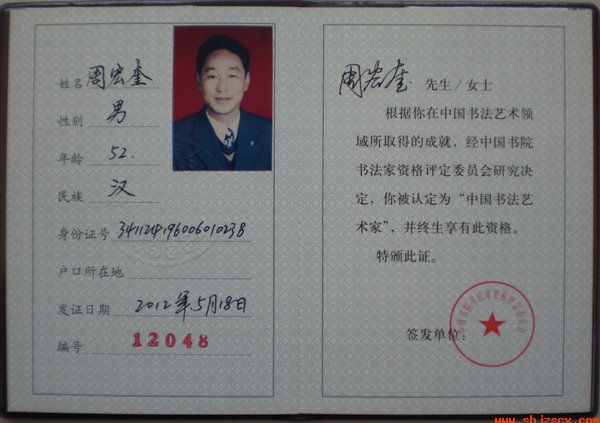 姓名 周宏奎
性别 男
年龄 52.
民族 汉
身份证号 341124196006010238
户口所在地
发证日期 2012年5月18日
编号 12048
周宏奎 先生/女士
根据你在中国书法艺术领
域所取得的成就，经中国书院
书法家资格评定委员会研究决
定，你被认定为“中国书法艺
术家”，并终生享有此资格。
特颁此证。
签发单位：
中国书院书法家资格评定委员会